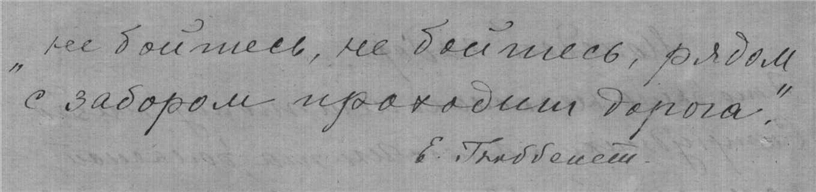 „не бойтесь, не бойтесь, рядом
с забором проходит дорога."
Е. Гиббенет.